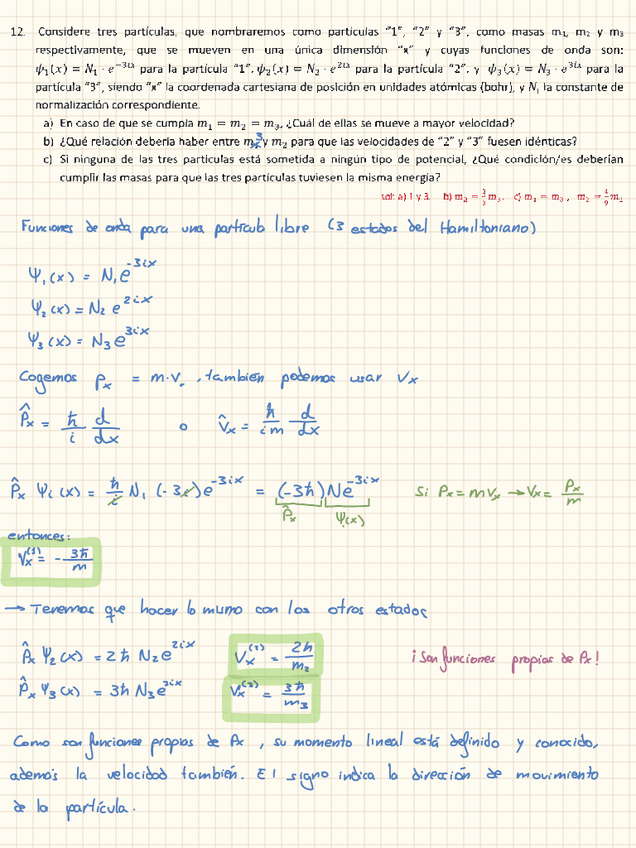 12. Considere tres partículas, que nombraremos como partículas "1", "2" y "3", como masas m₁, m₂ y m₃
respectivamente, que se mueven en una única dimensión "x" y cuyas funciones de onda son:
ψ₁(x) = N₁ · e^{-3ix} para la partícula "1", ψ₂(x) = N₂ · e^{2ix} para la partícula "2", y ψ₃(x) = N₃ · e^{3ix} para la
partícula "3", siendo "x" la coordenada cartesiana de posición en unidades atómicas (bohr), y Nᵢ la constante de
normalización correspondiente.
a) En caso de que se cumpla m₁ = m₂ = m₃, ¿Cuál de ellas se mueve a mayor velocidad?
b) ¿Qué relación debería haber entre m₃ y m₂ para que las velocidades de "2" y "3" fuesen idénticas?
c) Si ninguna de las tres partículas está sometida a ningún tipo de potencial, ¿Qué condición/es deberían
cumplir las masas para que las tres partículas tuviesen la misma energía?
sol: a) 1 y 3. b) m₂ = 2/3 m₃. c) m₁ = m₃, m₂ = 4/9 m₁
Funciones de onda para una partícula libre (3 estados del Hamiltoniano)
Ψ₁(x) = N₁e^{-3ix}
Ψ₂(x) = N₂ e^{2ix}
Ψ₃(x) = N₃e^{3ix}
Cogemos pₓ = m·vₓ, también podemos usar Vₓ
P̂ₓ = ħ/i d/dx o V̂ₓ = ħ/im d/dx
P̂ₓ Ψᵢ(x) = ħ/i N₁ (-3i)e^{-3ix} = (-3ħ)Ne^{-3ix} Si Pₓ = mVₓ → Vₓ = Pₓ/m
P̂ₓ Ψ(x)
entonces:
Vₓ^{(1)} = - 3ħ/m
→ Tenemos que hacer lo mismo con los otros estados
P̂ₓ Ψ₂(x) = 2ħ N₂e^{2ix} Vₓ^{(2)} = 2ħ/m₂ ¡Son funciones propias de Pₓ!
P̂ₓ Ψ₃(x) = 3ħ N₃e^{3ix} Vₓ^{(3)} = 3ħ/m₃
Como son funciones propias de Pₓ, su momento lineal está definido y conocido,
además la velocidad también. El signo indica la dirección de movimiento
de la partícula.